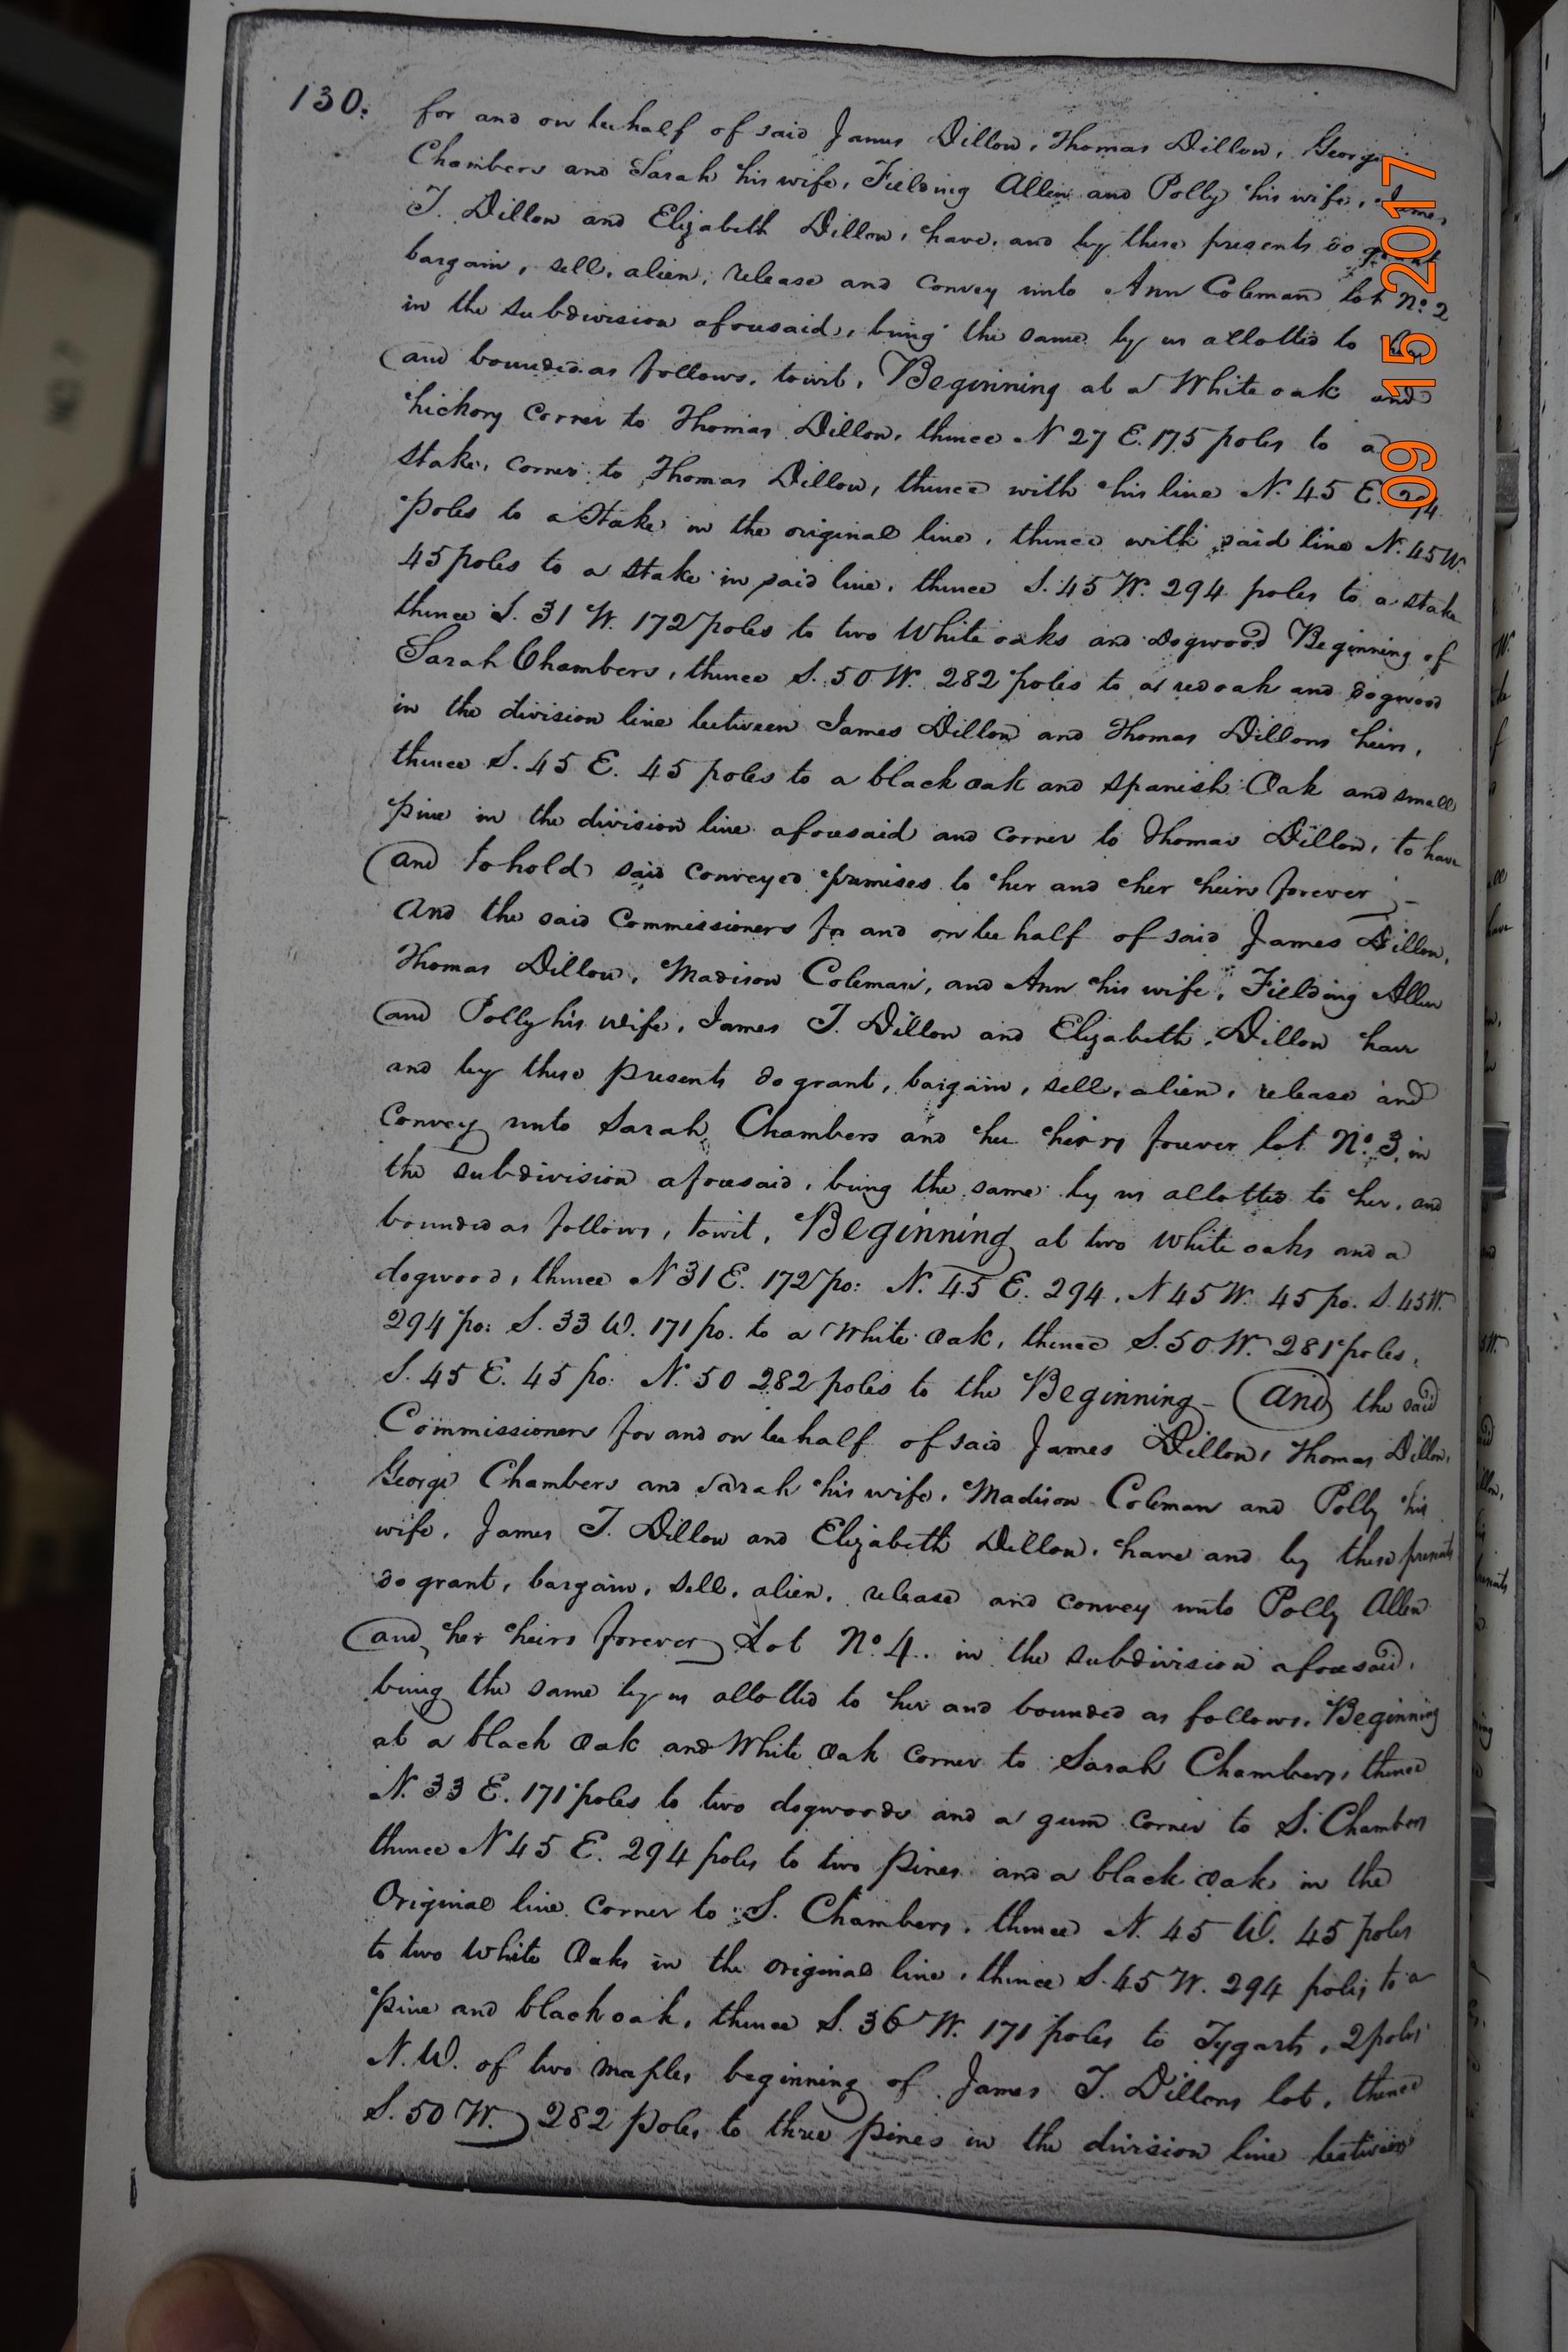 130.
for and on behalf of said James Dillon, Thomas Dillon, George
Chambers and Sarah his wife, Fielding Allen and Polly his wife, James
T. Dillon and Elizabeth Dillon, have, and by these presents do grant
bargain, sell, alien, release and convey unto Ann Coleman lot No. 2
in the subdivision aforesaid, being the same by us allotted to her
and bounded as follows, towit, Beginning at a White oak and
hickory corner to Thomas Dillon, thence N 27 E. 175 poles to a
stake, corner to Thomas Dillon, thence with his line N. 45 E. 294
poles to a Stake in the original line, thence with said line N. 45 W.
45 poles to a stake in said line, thence S. 45 W. 294 poles to a stake
thence S. 31 W. 172 poles to two White oaks and dogwood Beginning of
Sarah Chambers, thence S. 50 W. 282 poles to a red oak and dogwood
in the division line between James Dillon and Thomas Dillons heirs,
thence S. 45 E. 45 poles to a black oak and spanish Oak and small
pine in the division line aforesaid and corner to Thomas Dillon, to have
and to hold said conveyed premises to her and her heirs forever -
And the said Commissioners for and on behalf of said James Dillon,
Thomas Dillon, Madison Coleman, and Ann his wife, Fielding Allen
and Polly his wife, James T. Dillon and Elizabeth Dillon have
and by these presents do grant, bargain, sell, alien, release and
convey unto Sarah Chambers and her heirs forever lot No. 3, in
the subdivision aforesaid, being the same by us allotted to her, and
bounded as follows, towit, Beginning at two White oaks and a
dogwood, thence N 31 E. 172 po: N. 45 E. 294. N 45 W. 45 po. S. 45 W.
294 po: S. 33 W. 171 po. to a White Oak, thence S. 50 W. 281 poles,
S. 45 E. 45 po: N. 50 282 poles to the Beginning - And the said
Commissioners for and on behalf of said James Dillon, Thomas Dillon,
George Chambers and Sarah his wife, Madison Coleman and Polly his
wife, James T. Dillon and Elizabeth Dillon, have and by these presents
do grant, bargain, sell, alien, release and convey unto Polly Allen
and her heirs forever Lot No. 4. in the subdivision aforesaid,
being the same by us allotted to her and bounded as follows, Beginning
at a black Oak and White Oak corner to Sarah Chambers, thence
N. 33 E. 171 poles to two dogwoods and a gum corner to S. Chambers
thence N 45 E. 294 poles to two pines and a black Oak in the
Original line corner to S. Chambers, thence N. 45 W. 45 poles
to two White Oaks in the original line, thence S. 45 W. 294 poles to a
pine and black oak, thence S. 36 W. 171 poles to Tygarts, 2 poles
N. W. of two maples beginning of James T. Dillons lot, thence
S. 50 W. 282 poles to three pines in the division line between
09 15 2017